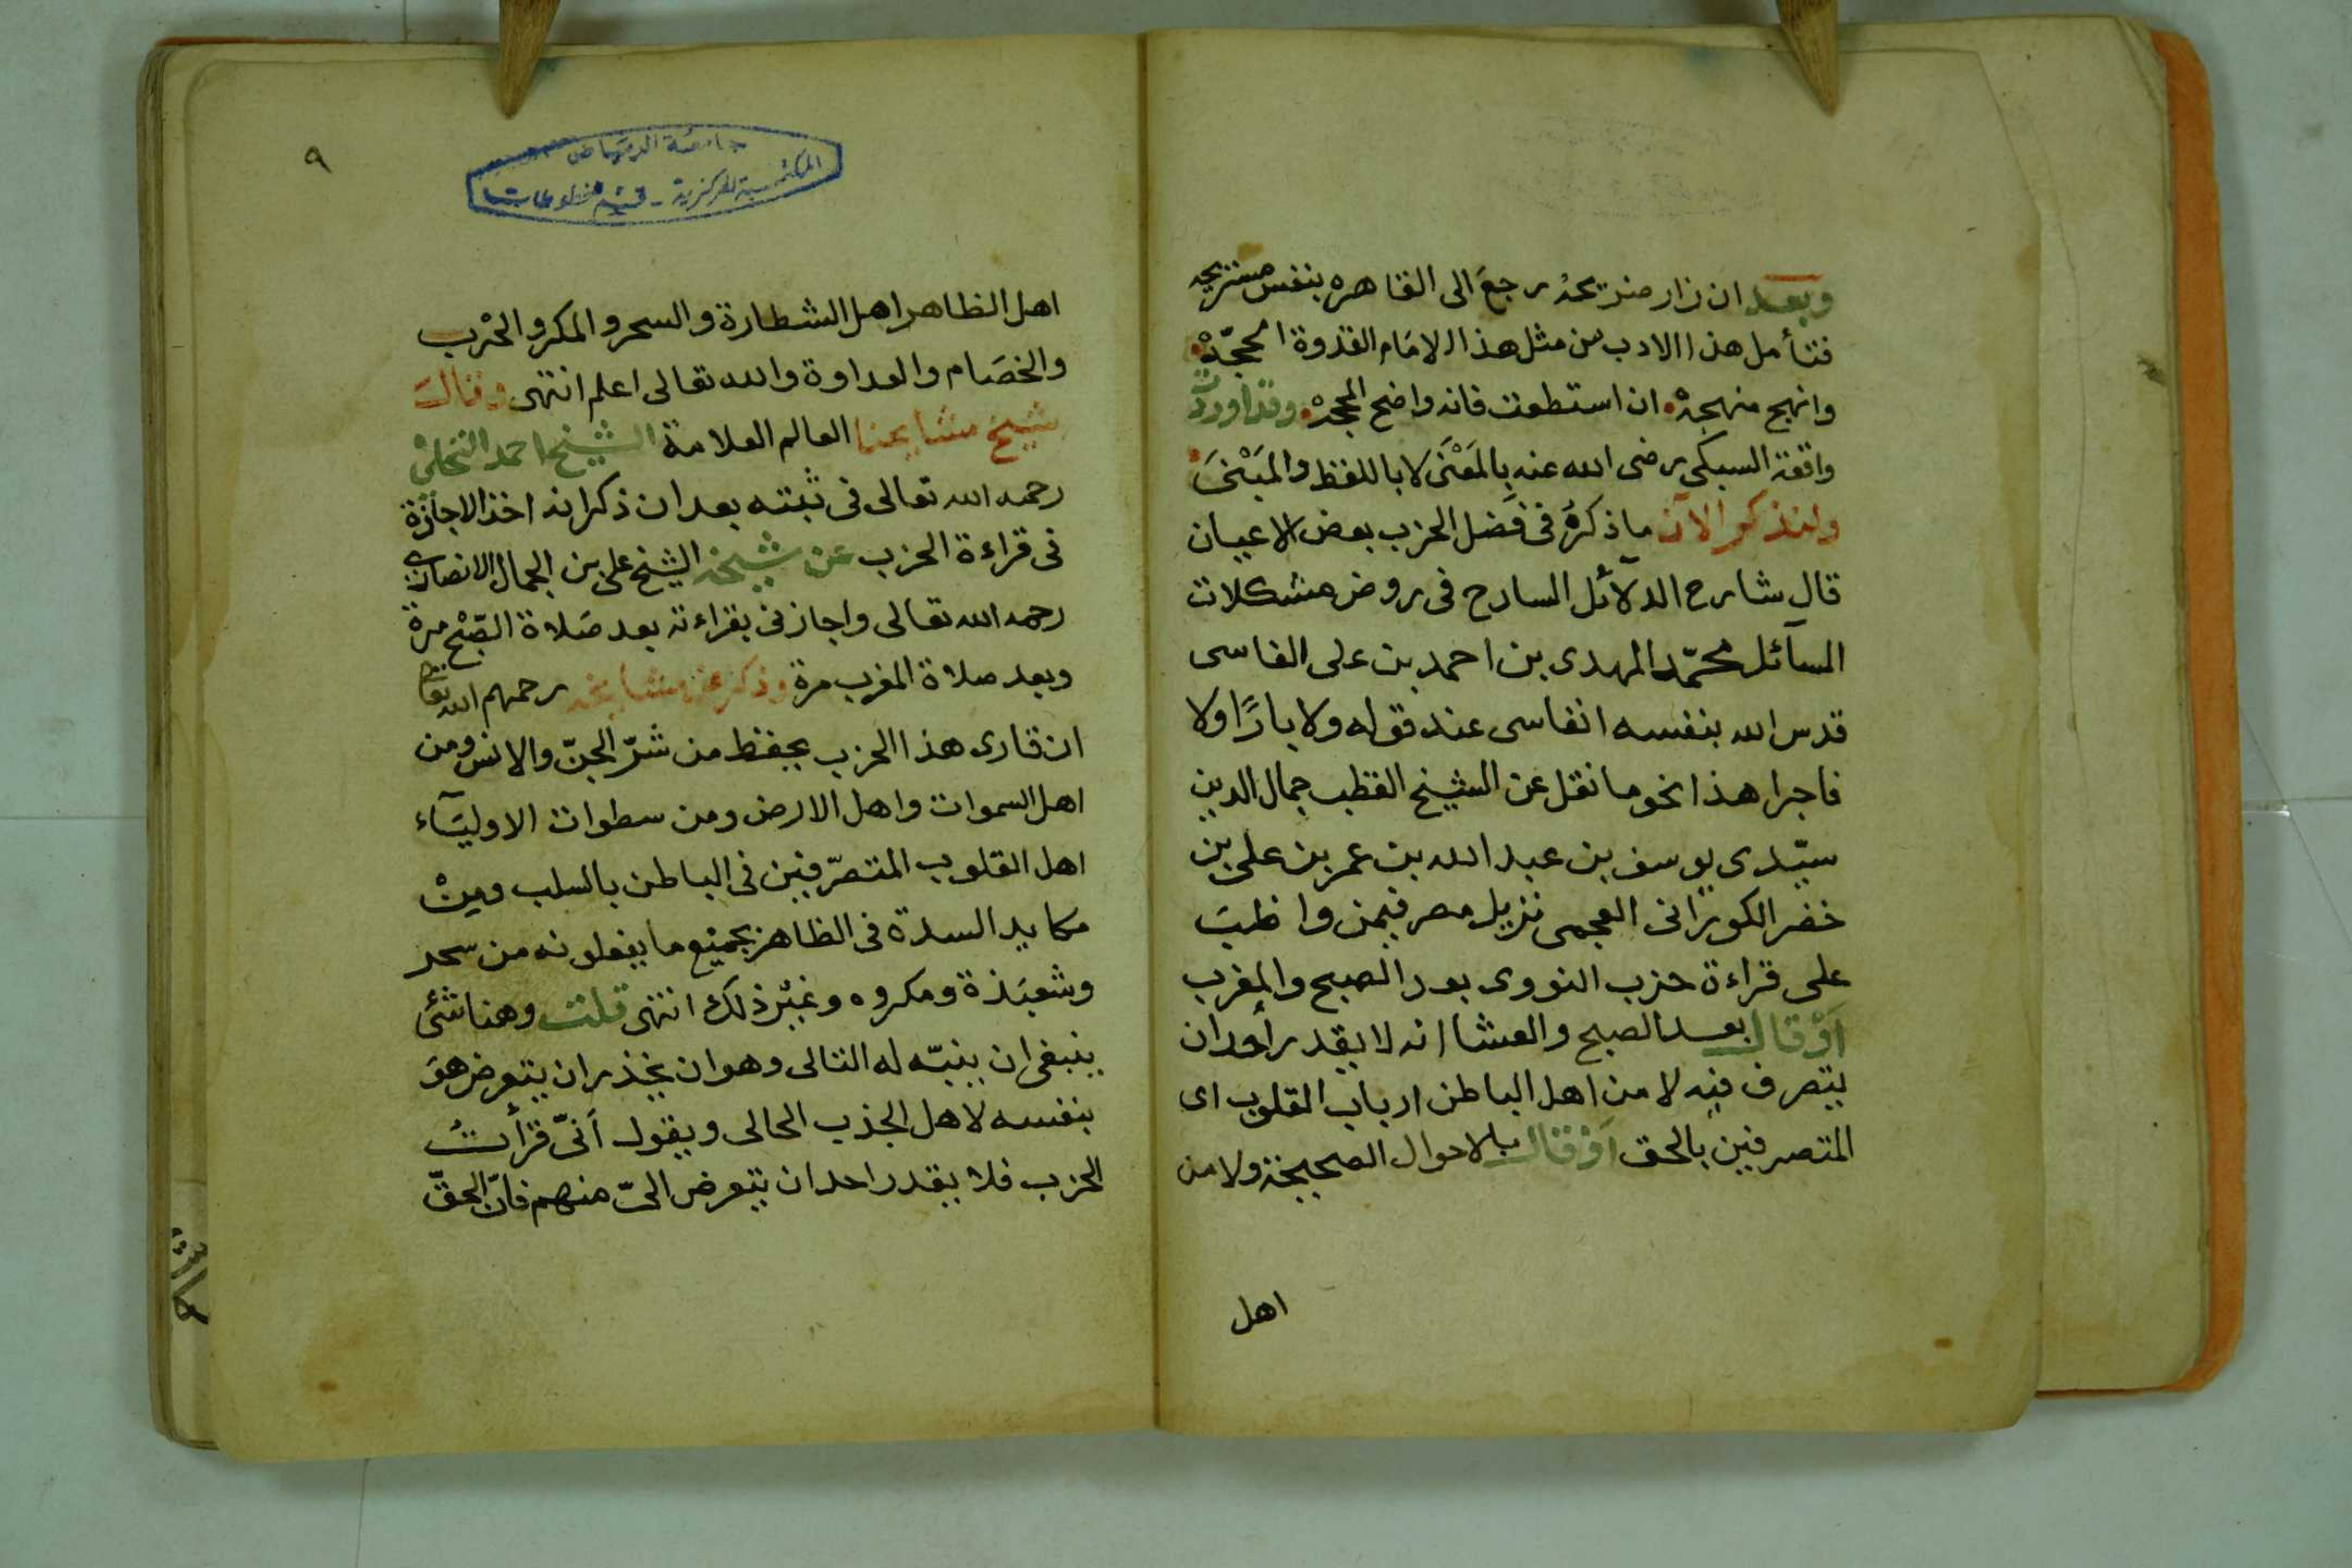 وبعد ان زار ضريحه رجع الى القاهره بنفس مستريحه
فتأمل هذا الادب من مثل هذا الامام القدوة الحجّة
وانهج منهجه ان استطعت فانه واضح المحجه وقد اوردت
واقعة السبكى رضى الله عنه بالمَعْنَى لا باللفظ والمَبْنَى
ولنذكر الآن ما ذكرهُ فى فضل الحزب بعض الاعيان
قال شارح الدلآئل السارح فى روض مشكلات
المسآئل محمّد المهدى بن احمد بن على الفاسى
قدس الله بنفسه انفاسى عند قوله ولا بارًا ولا
فاجرا هذا نحو ما نقل عن الشيخ القطب جمال الدين
سيّدى يوسف بن عبد الله بن عمر بن على بن
خضر الكورانى العجمى نزيل مصر فيمن واظب
على قراءة حزب النووى بعد الصبح والمغرب
أوْ قال بعد الصبح والعشا انه لا يقدر أحد ان
يتصرف فيه لا من اهل الباطن ارباب القلوب اى
المتصرفين بالحق أوْ قال بالاحوال الصحيحة ولا من
اهل
٩
جامعة الرياض
المكتبة المركزية - قسم المخطوطات
اهل الظاهر اهل الشطارة والسحر والمكر والحرْب
والخصَام والعداوة والله تعالى اعلم انتهى وقال
شيخ مشايخنا العالم العلامة الشيخ احمد النخلىْ
رحمه الله تعالى فى ثبته بعد ان ذكر انه اخذ الاجازة
فى قراءة الحزب عن شيخه الشيخ على بن الجمال الانصارى
رحمه الله تعالى واجازنى بقراءته بعد صَلاة الصّبْح مرة
وبعد صلاة المغرب مرة وذكر عن مشايخه رحمهم الله تعالى
ان قارى هذا الحزب يحفظ من شرّ الجنّ والانس ومن
اهل السموات واهل الارض ومن سطوات الاوليَآء
اهل القلوب المتصرّفين فى الباطن بالسلب ومِنْ
مكايد السدة فى الظاهر بجميع ما يفعلونه من سحر
وشعبَذة ومكروه وغيْر ذلك انتهى قلت وهنا شئ
ينبغى ان ينبّه له التالى وهو ان يحذر ان يتعرض هوَ
بنفسه لاهل الجذب الحالى ويقول أنىّ قرأتُ
الحزب فلا يقدر احد ان يتعرض الىّ منهم فانّ الحقّ